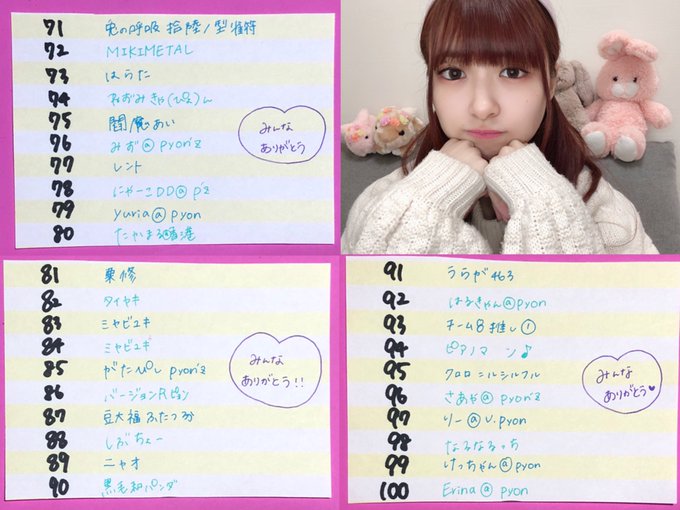 71 兎の呼吸 拾陸ノ型 雀符
72 MIKIMETAL
73 はらた
74 ねずみきゃ(ぴょ)ん
75 閻魔あい
76 みず@pyon'z
77 レント
78 にゃーこDD@p'z
79 yuria@pyon
80 たかまる@香港
みんな
ありがとう
81 栗修
82 タイヤキ
83 ミヤビユキ
84 ミヤビユギ
85 がたぴし pyon'z
86 バージョンRピョン
87 豆大福ふたつみ
88 しぶちょー
89 ニャオ
90 黒毛和パンダ
みんな
ありがとう!!
91 うらが463
92 はるきゃん@pyon
93 チーム8推し①
94 ピアノマン♪
95 クロロニルシルフル
96 さあや@pyon'z
97 りー@U.pyon
98 なるなるっち
99 けっちゃん@pyon
100 Erina@pyon
みんな
ありがとう♥